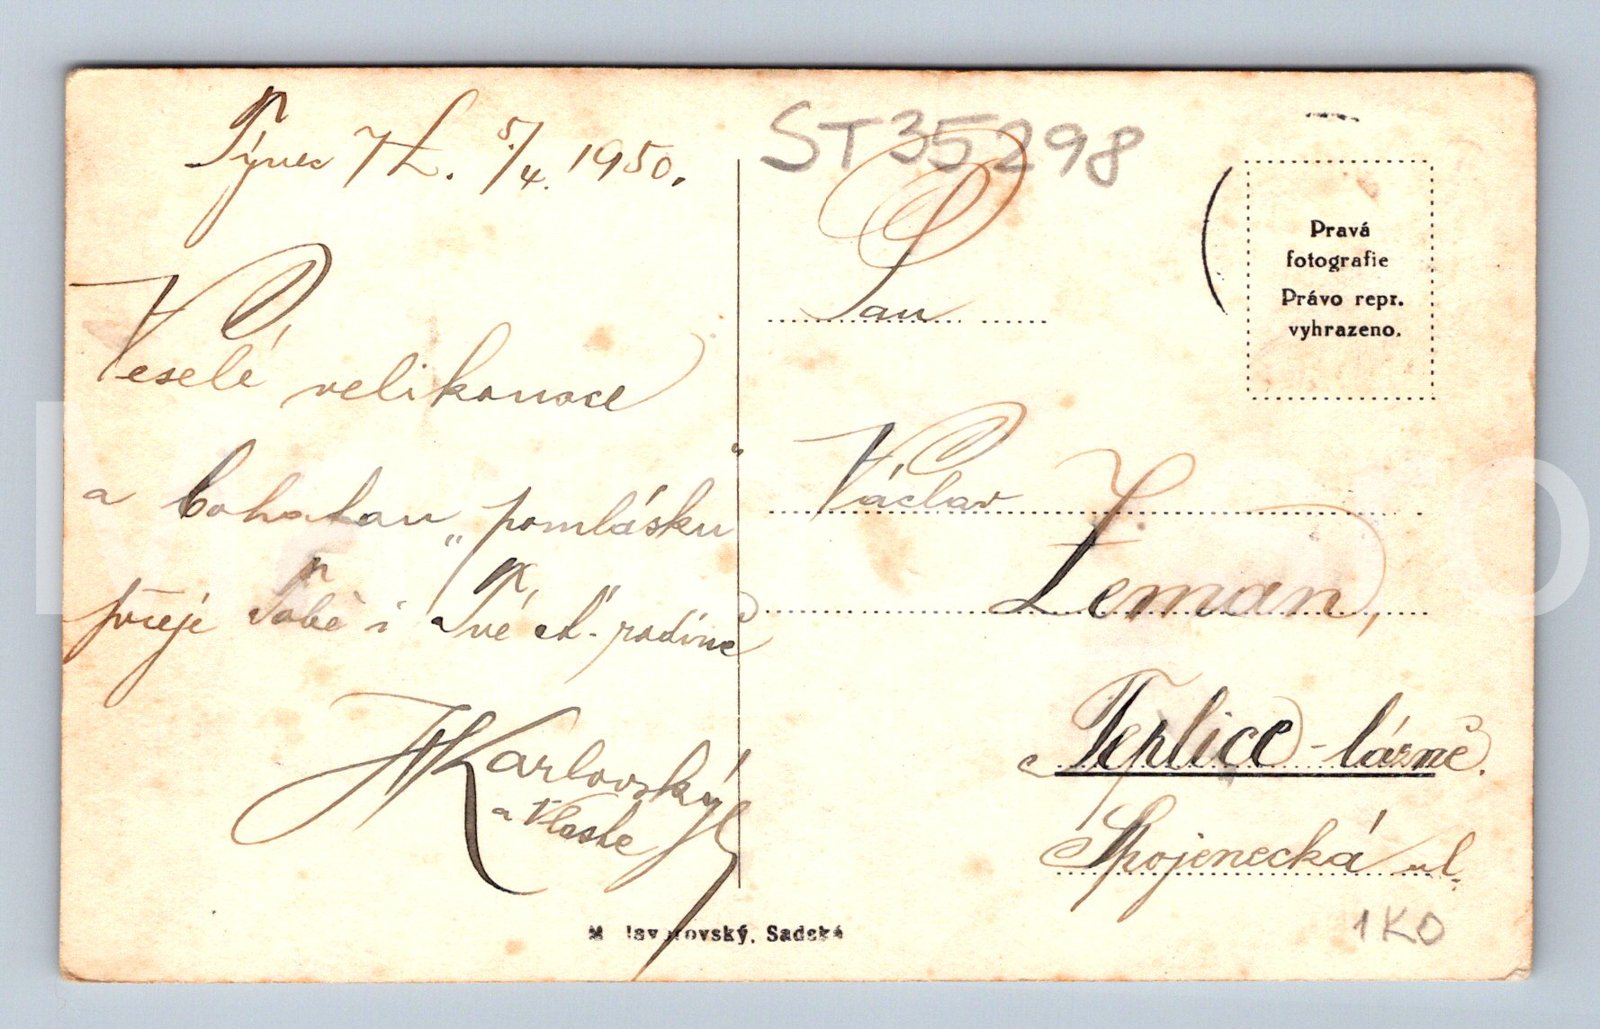 Týnec 5/4. 1950.
Veselé velikonoce
a bohatou „pomlásku"
přeje Tobě i Tvé ct. rodině
Karlovský
a Vlaste
ST35298
Pan
Václav
Zeman,
Teplice-lázně.
Spojenecká ul.
Pravá
fotografie
Právo repr.
vyhrazeno.
Sadská
1K0